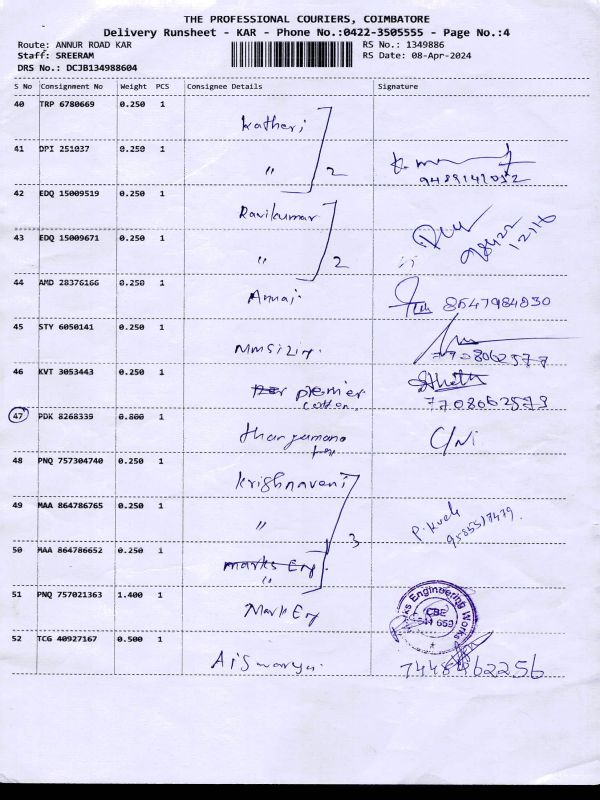 THE PROFESSIONAL COURIERS, COIMBATORE
Delivery Runsheet - KAR - Phone No.:0422-3505555 - Page No.:4
Route: ANNUR ROAD KAR
RS No.: 1349886
Staff: SREERAM
RS Date: 08-Apr-2024
DRS No.: DCJB134988604
S No Consignment No Weight PCS Consignee Details Signature
40 TRP 6780669 0.250 1
41 DPI 251037 0.250 1 " 2
42 EDQ 15009519 0.250 1 Ravikumar
43 EDQ 15009671 0.250 1 " 2
44 AMD 28376166 0.250 1 8547984830
45 STY 6050141 0.250 1 7708062577
46 KVT 3053443 0.250 1 premier
cotton 7708062579
47 PDK 8268339 0.800 1 C/Ni
48 PNQ 757304740 0.250 1 Krishnaveni
49 MAA 864786765 0.250 1 "
50 MAA 864786652 0.250 1 marks Eng. 3
"
51 PNQ 757021363 1.400 1 Mark Eng
Marks Engineering Works
CBE
52 TCG 40927167 0.500 1 Aiswarya 7448462256